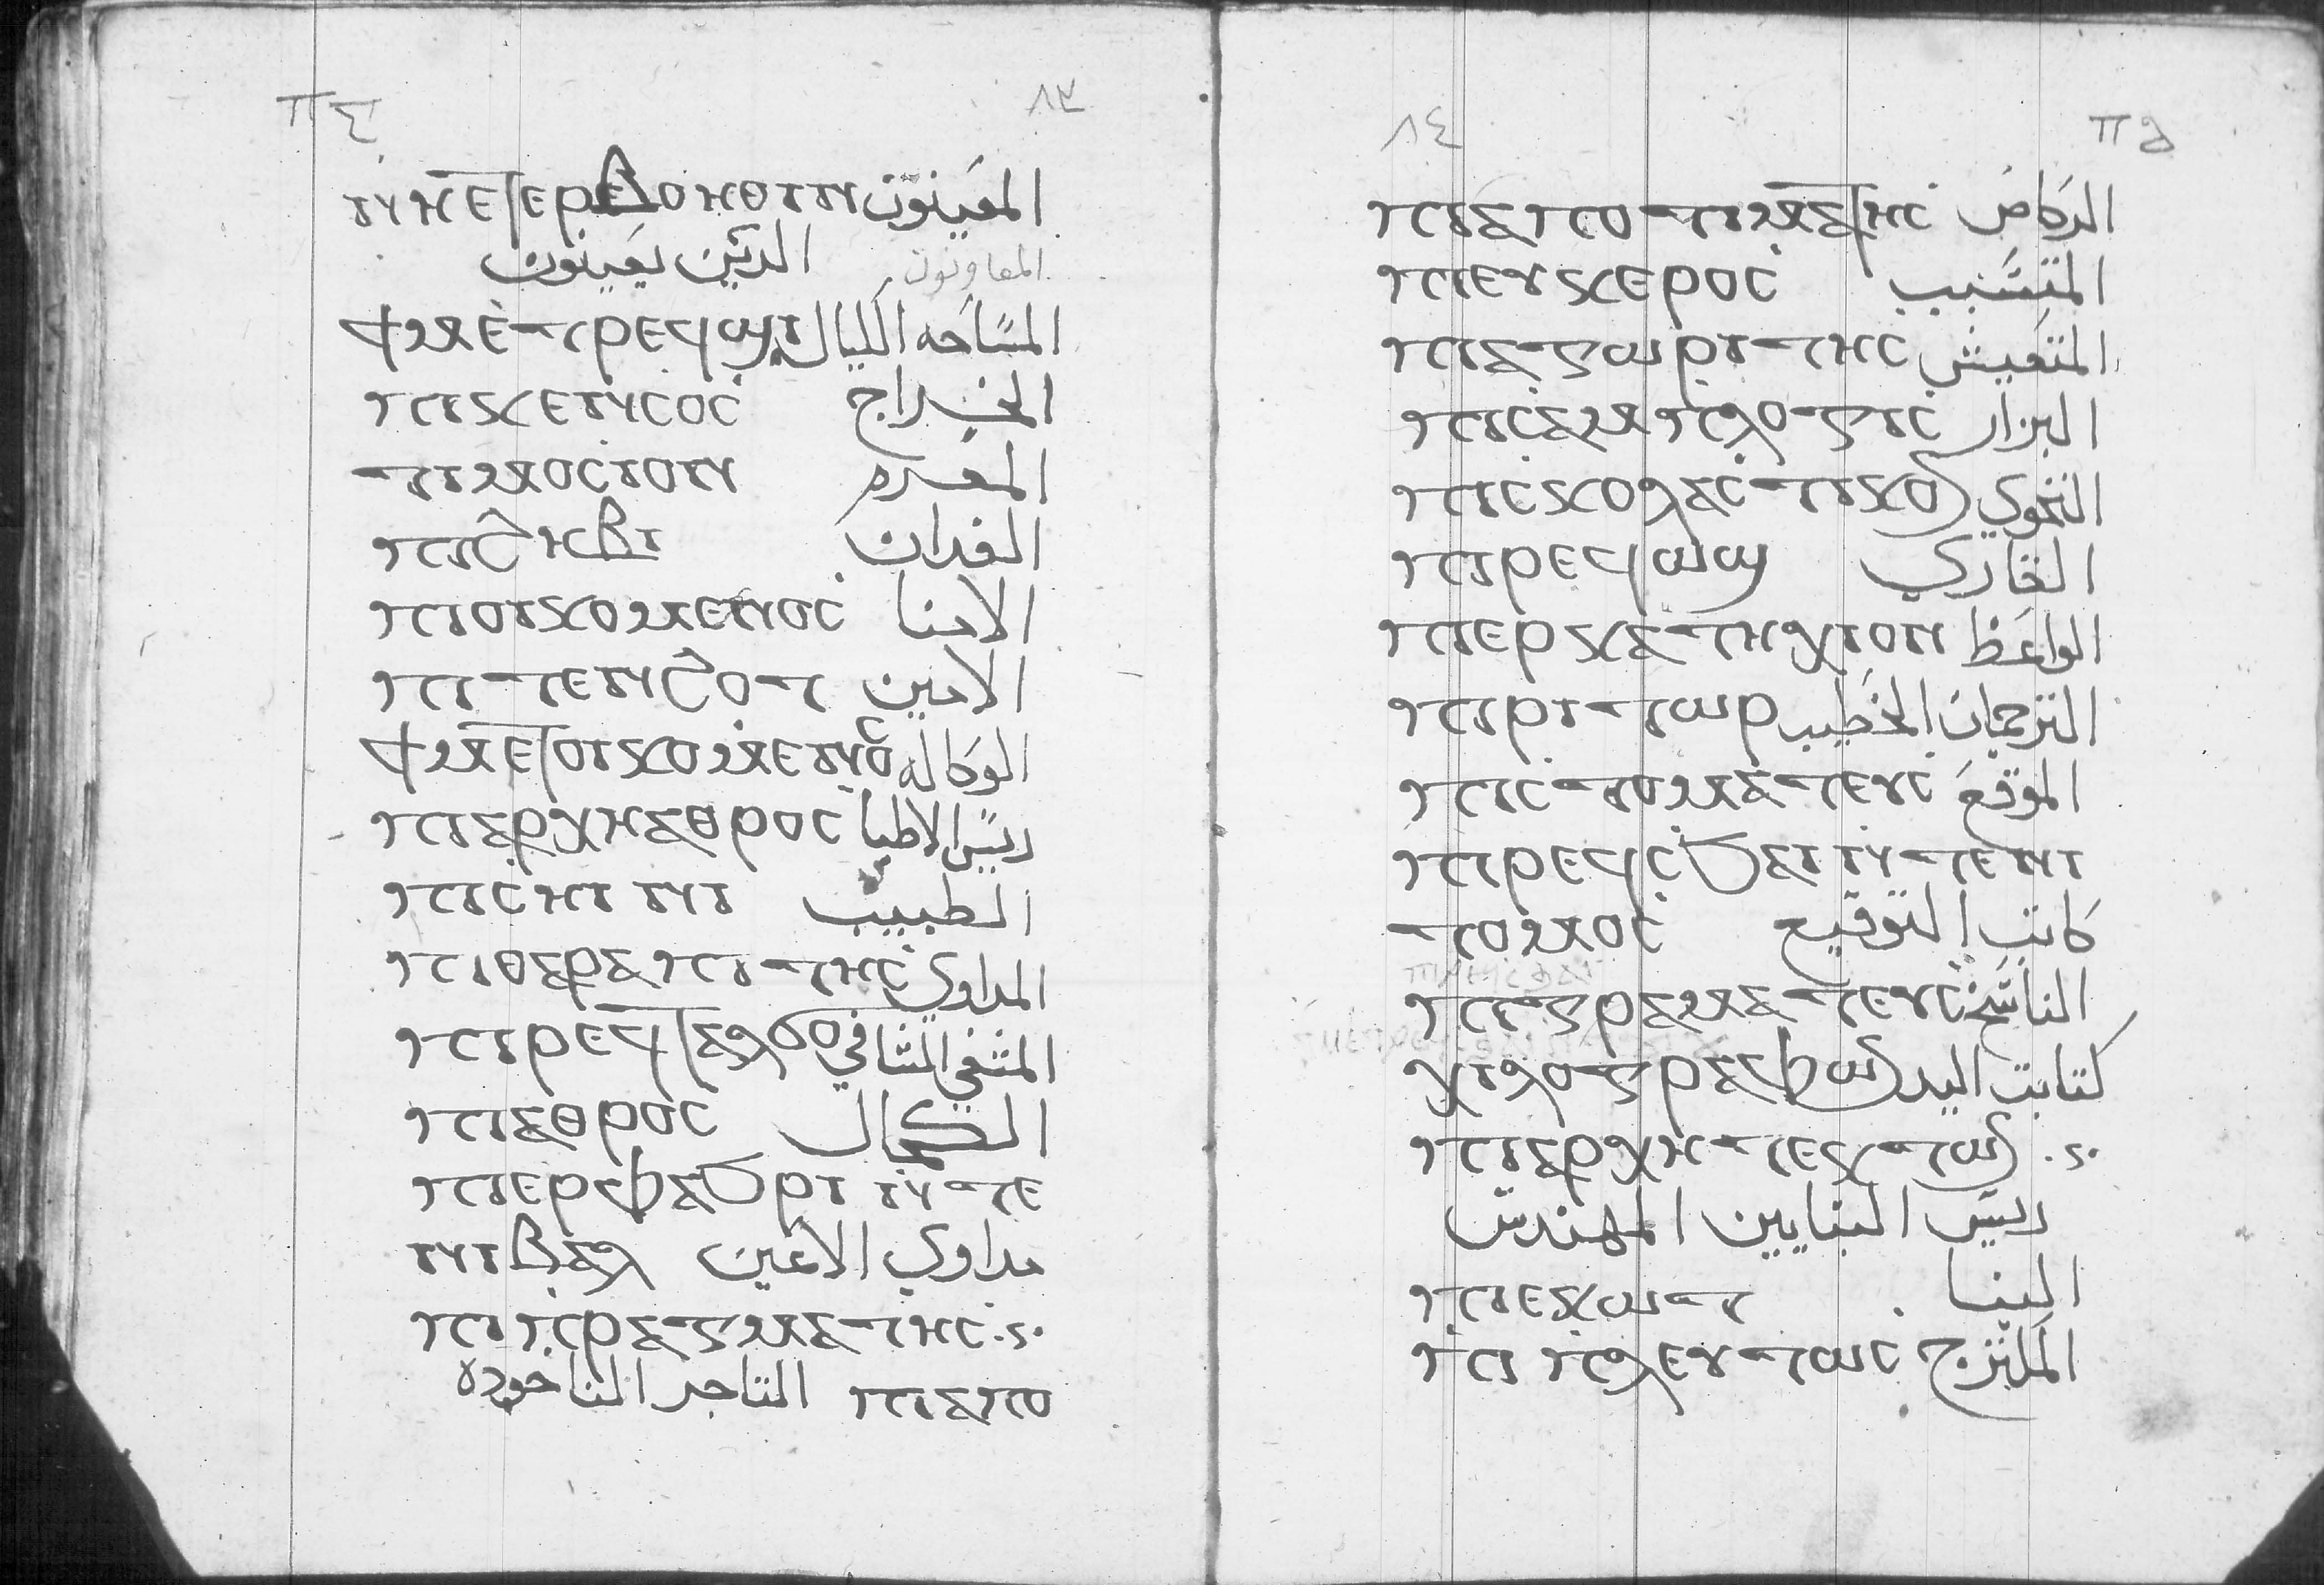 ⲡⲅ ٨٣
ⲛⲏⲉⲧⲉⲣⲃⲟⲏⲑⲓⲛ المعينون
الدين يعينون المعاونون
ϯⲙⲉⲧⲣⲉϥϣⲓ المساحه الكيال
ⲡⲓⲕⲉⲛⲥⲟⲥ الخراج
ⲧⲓⲙⲟⲥⲓⲟⲛ
ⲡⲓϩⲏⲃⲓ الفدان
ⲡⲓⲟⲓⲕⲟⲙⲉⲛⲟⲥ الامنا
ⲡⲓⲧⲉⲛϩⲟⲧ الامين
ϯⲙⲉⲧⲟⲓⲕⲟⲙⲉⲛⲟⲥ الوكاله
ⲡⲓⲁⲣⲭⲏⲁⲑⲣⲟⲥ رييس الاطبا
ⲡⲓⲥⲏⲓⲛⲓ الطبيب
ⲡⲓⲑⲁⲣⲁⲡⲓⲧⲏⲥ المداوي
ⲡⲓⲣⲉϥⲧⲁⲗϭⲟ المشفي الشافي
ⲡⲓⲁⲑⲣⲟⲥ الكحال
ⲡⲓⲉⲣⲫⲁϧⲣⲓ ⲛⲧⲉ
ⲛⲓⲃⲁⲗ مداوي الاعين
ⲡⲓⲡⲣⲁⲅⲙⲁⲧⲏⲥ .ⲕ.
ⲡⲓⲁⲡⲟ التاجر الناخوده
٨٤ ⲡⲇ
ⲡⲓⲁⲡⲟⲧⲓⲙⲁⲧⲏⲥ الركاض
ⲡⲓⲉⲩⲕⲉⲣⲟⲥ المتسبب
ⲡⲓⲁⲅⲱⲣⲓⲧⲏⲥ المتعيش
ⲡⲓⲥⲁⲙⲡⲗⲟⲅⲓⲥ البزار
ⲡⲓⲥⲕⲟⲗⲁⲥⲧⲓⲕⲟⲥ النحوي
ⲡⲓⲣⲉϥⲱϣ القاري
ⲡⲓⲉⲣⲕⲁⲧⲏⲭⲓⲟⲛ الواعظ
ⲡⲓⲣⲓⲧⲱⲣ الترجمان الخطيب
ⲡⲓⲥⲧⲟⲙⲁⲧⲉⲩⲥ الموقع
ⲡⲓⲣⲉϥⲥϧⲁⲓ ⲛⲧⲉⲛⲓ
ⲧⲟⲙⲟⲥ كاتب التوقيع
ⲡⲓⲅⲣⲁⲙⲁⲧⲉⲩⲥ الناسخ
ⲭⲓⲗⲟⲅⲣⲁⲫⲱⲥ كتابت اليد
ⲡⲓⲁⲣⲭⲏⲧⲉⲕⲧⲱⲥ .ⲕ.
رييس البنايين المهندس
ⲡⲓⲉⲕⲱⲧ البنا
ⲡⲓⲡⲗⲉⲩⲧⲱⲥ